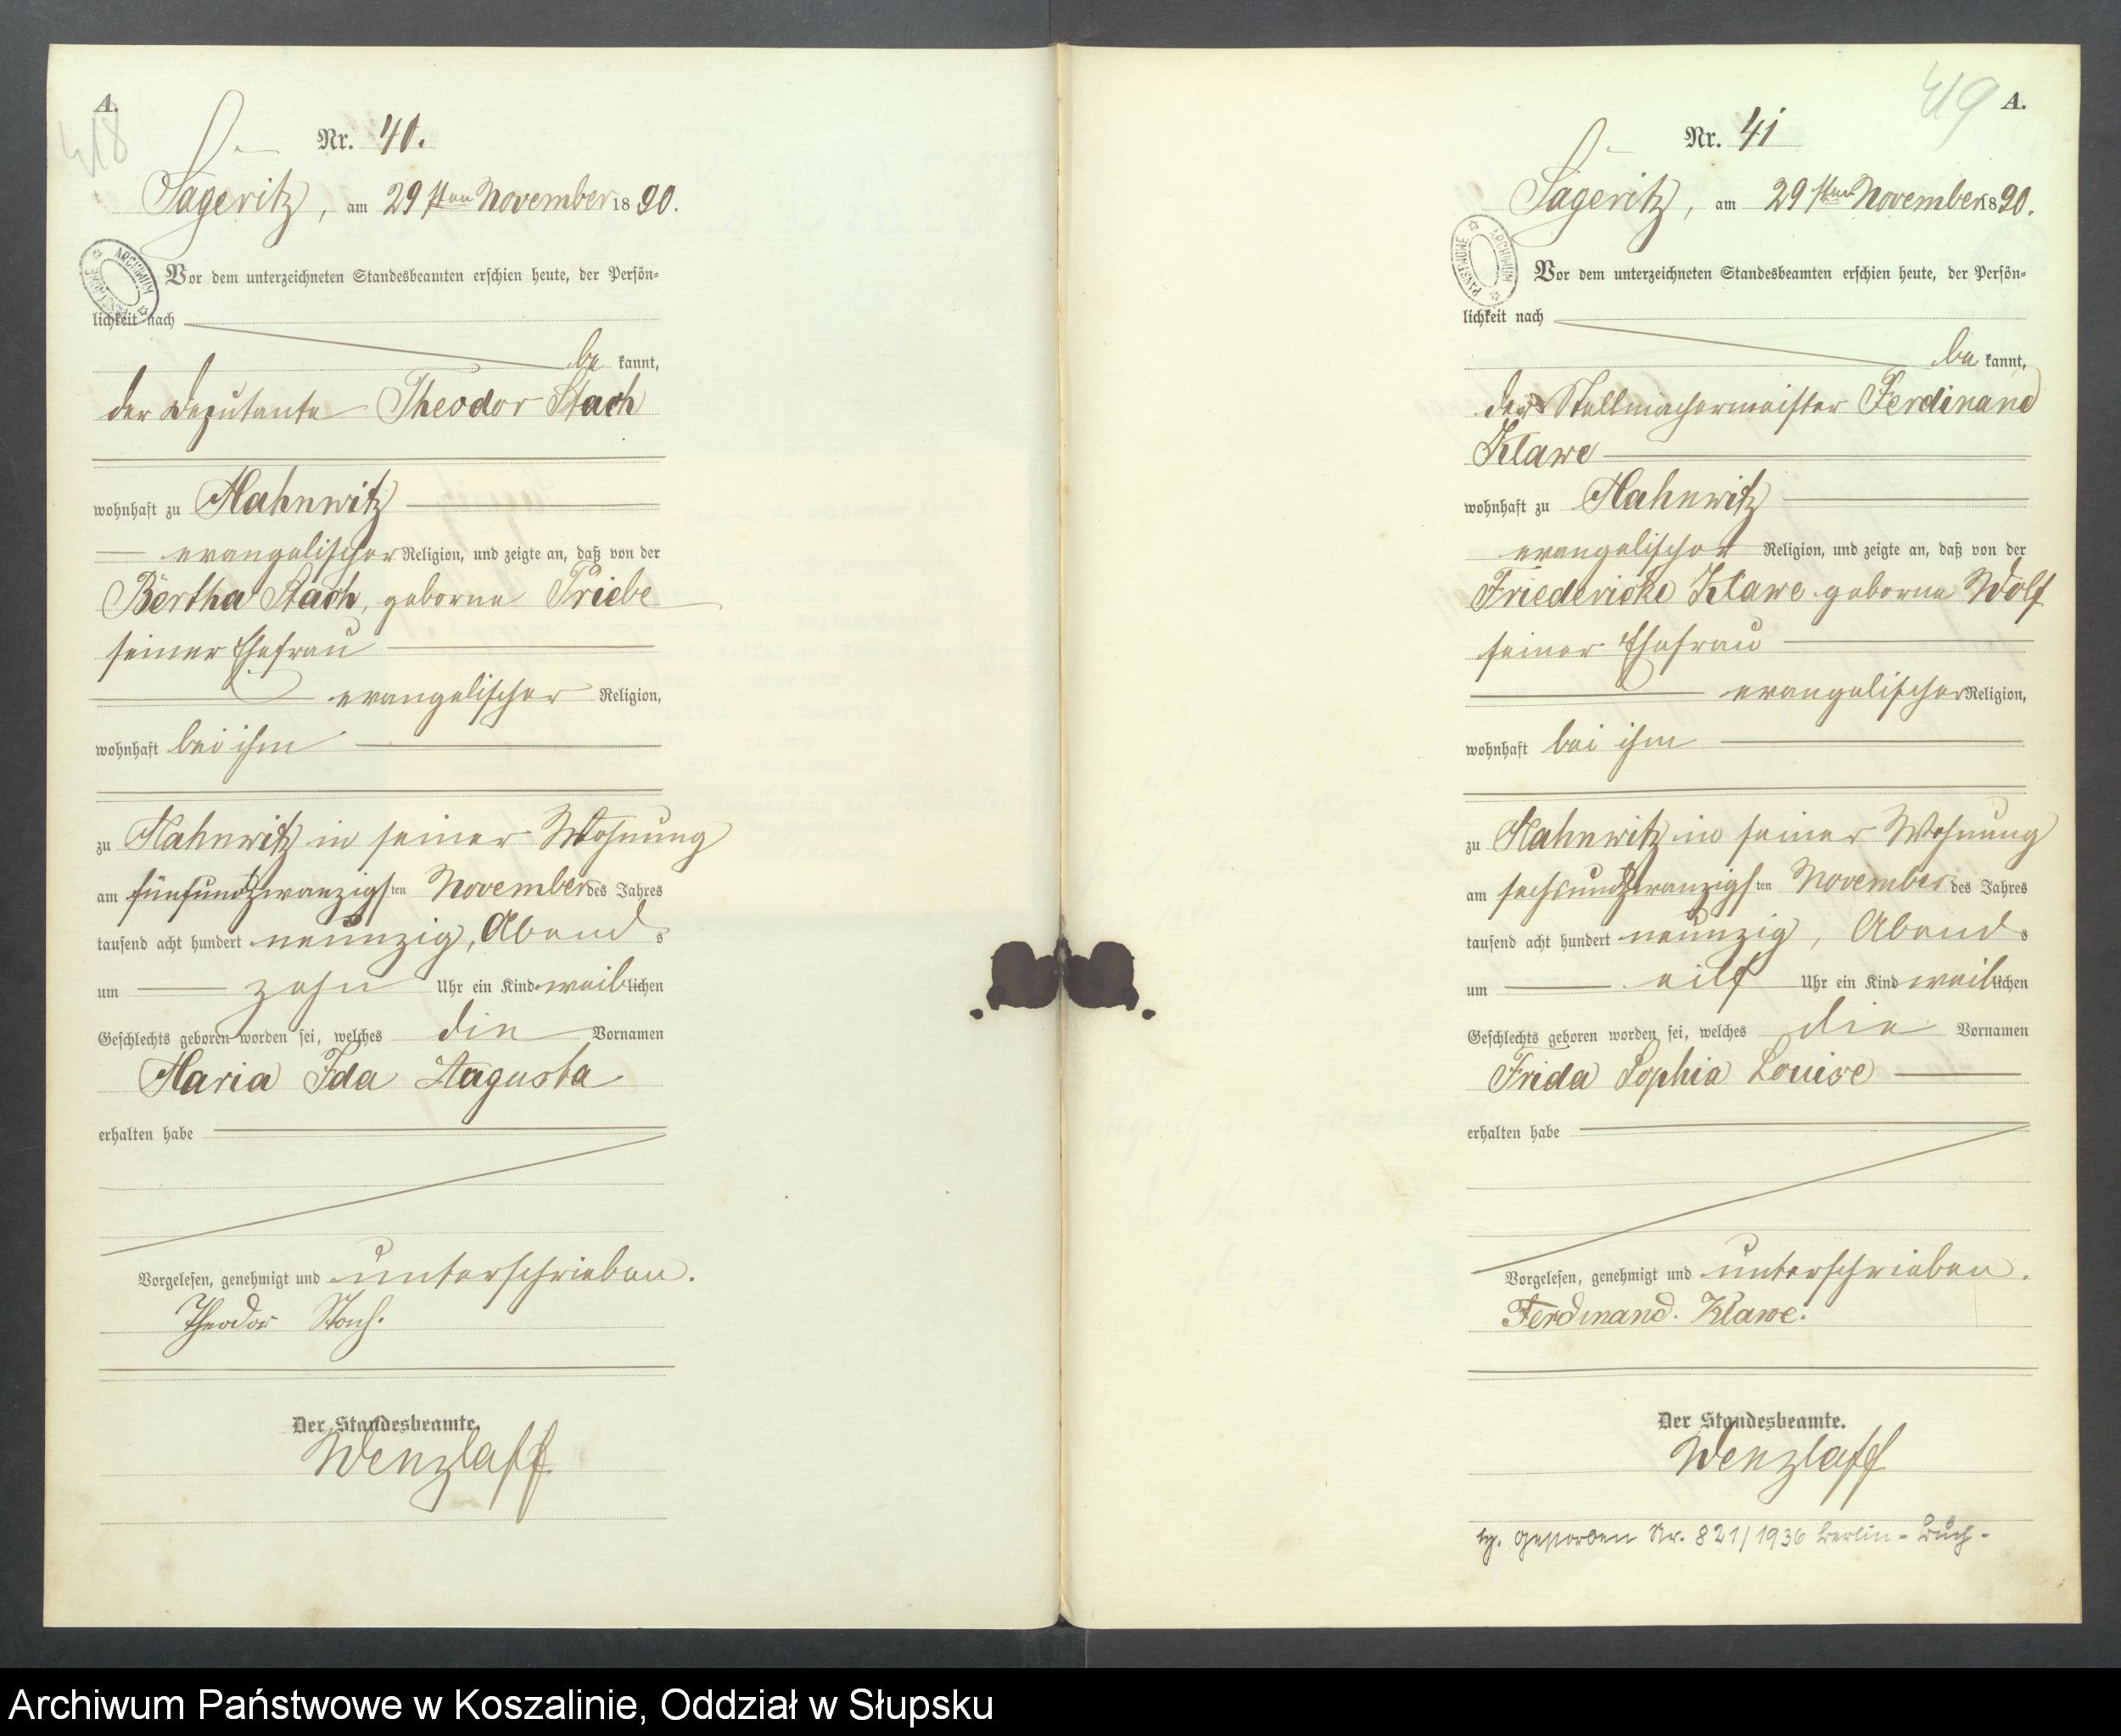 A.
418
Nr. 40.
Sageritz, am 29sten November 1890.
Vor dem unterzeichneten Standesbeamten erschien heute, der Persön-
lichkeit nach
bekannt,
der Deputante Theodor Stach
wohnhaft zu Mahnwitz
evangelischer Religion, und zeigte an, daß von der
Bertha Stach, geborne Priebe
seiner Ehefrau
evangelischer Religion,
wohnhaft bei ihm
zu Mahnwitz in seiner Wohnung
am fünfundzwanzigsten November des Jahres
tausend acht hundert neunzig, Abends
um zehn Uhr ein Kind weiblichen
Geschlechts geboren worden sei, welches die Vornamen
Maria Ida Augusta
erhalten habe
Vorgelesen, genehmigt und unterschrieben.
Theodor Stach.
Der Standesbeamte.
Wenzlaff
ARCHIWUM PAŃSTWOWE
419
A.
Nr. 41
Sageritz, am 29sten November 1890.
Vor dem unterzeichneten Standesbeamten erschien heute, der Persön-
lichkeit nach
bekannt,
der Stellmachermeister Ferdinand
Klawe
wohnhaft zu Mahnwitz
evangelischer Religion, und zeigte an, daß von der
Friedericke Klawe geborne Wolf
seiner Ehefrau
evangelischer Religion,
wohnhaft bei ihm
zu Mahnwitz in seiner Wohnung
am sechsundzwanzigsten November des Jahres
tausend acht hundert neunzig, Abends
um eilf Uhr ein Kind weiblichen
Geschlechts geboren worden sei, welches die Vornamen
Frida Sophia Louise
erhalten habe
Vorgelesen, genehmigt und unterschrieben.
Ferdinand. Klawe.
Der Standesbeamte.
Wenzlaff
gestorben Nr. 821/1936 Berlin-Buch-
ARCHIWUM PAŃSTWOWE
Archiwum Państwowe w Koszalinie, Oddział w Słupsku